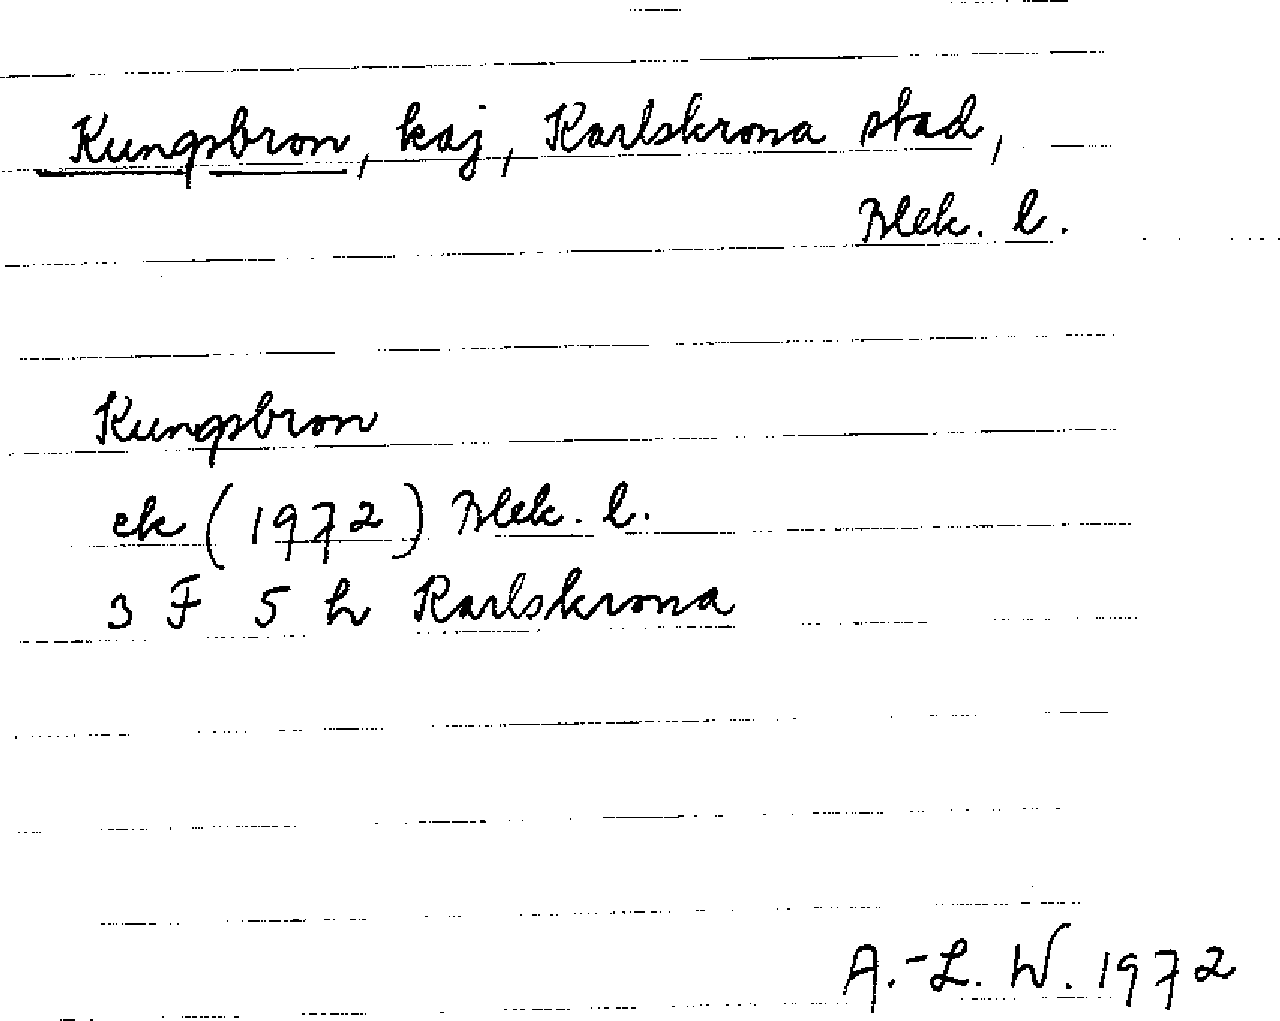 Kungsbron, kaj, Karlskrona stad,
Blek. l.
Kungsbron
ek (1972) Blek. l.
3 F 5 h Karlskrona
A.-L. W. 1972